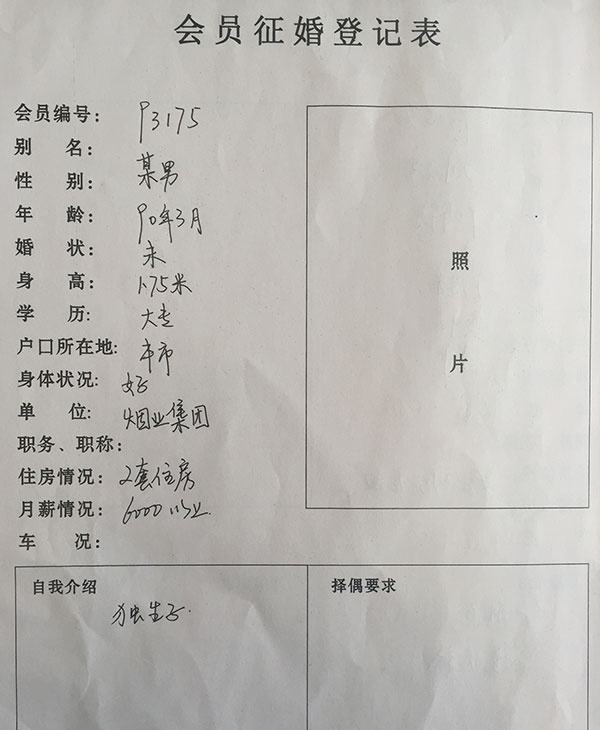 会员征婚登记表
会员编号： P3175
别 名：
性 别： 某男
年 龄： 90年3月
婚 状： 未
身 高： 1.75米
学 历: 大专
户口所在地: 本市
身体状况: 好
单 位: 烟业集团
职务、职称：
住房情况： 2套住房
月薪情况： 6000以上
车 况：
照
片
自我介绍
独生子.
择偶要求